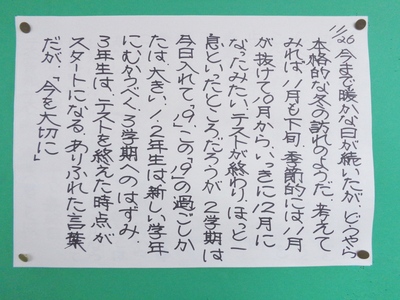 11/26 今まで暖かな日が続いたが、どうやら
本格的な冬の訪れのようだ。考えて
みれば、11月も下旬。季節的には11月
が抜けて10月から、いっきに12月に
なったみたい。テストが終わり、ほっと一
息といったところだろうが、2学期は
今日入れて、"9"。この"9"の過ごしか
たは大きい。1、2年生は新しい学年
にむかうべく3学期へのはずみ、
3年生は、テストを終えた時点が
スタートになる。ありふれた言葉
だが、「今を大切に」